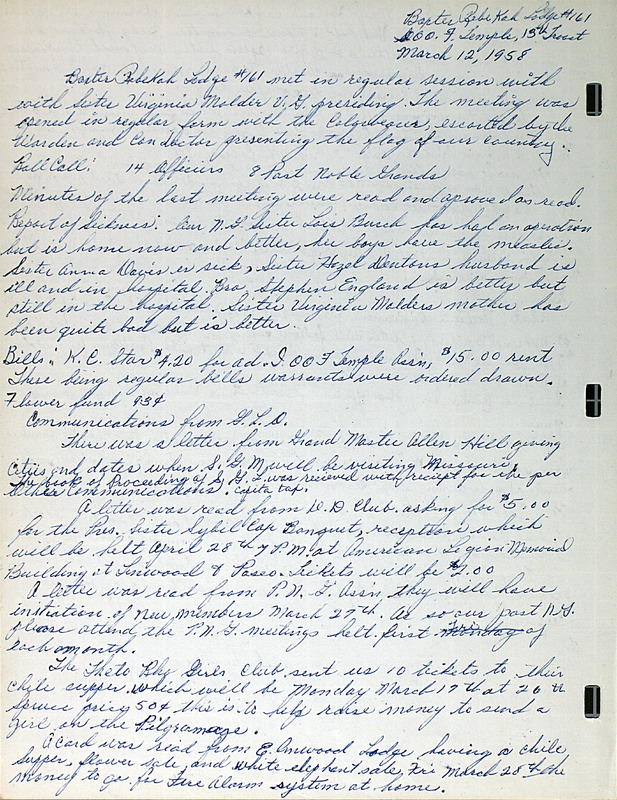 Baxter Rebekah Lodge #161
I.O.O.F Temple, 13th Troost
March 12, 1958
Baxter Rebekah Lodge #161 met in regular session with
with Sister Virginia Molder V.G. presiding. The meeting was
opened in regular form with the Colorbearer, escorted by the
Warden and Conductor presenting the flag of our country.
Roll Call: 14 Officers 8 Past Noble Grands
Minutes of the last meeting were read and aproved as read.
Report of Sickness: Our N.G. Sister Lois Burch has had an operation
but is home now and better, her boys have the measles.
Sister Anna Davis is sick, Sister Hazel Dentons husband is
ill and in hospital. Bro. Stephen England is better but
still in the hospital. Sister Virginia Molders mother has
been quite bad but is better.
Bills: K.C. Star $4.20 for ad. I.OOF Temple Ass'n, $15.00 rent
These being regular bills warrants were ordered drawn.
Flower fund 93¢
Communications from G.L.O.
There was a letter from Grand Master Allen Hill giving
Cities and dates when S.G.M. will be visiting Missouri,
The book of Proceeding of S.G.L. was recieved with receipt for the per
other communications. capita tax.
A letter was read from D.D. Club. asking for $5.00
for the Pres. Sister Sybil Cap Banquet, reception which
will be helt April 28th 7 P.M. at American Legion Memorial
Building at Linwood & Paseo. Tickets will be $2.00
A letter was read from P.N.G. Ass'n. they will have
initiation of New members March 27th. As so our past N.G.
please attend the P.N.G meetings helt first Monday of
each month.
The Theta Rho Girls Club sent us 10 tickets to their
chile supper which will be Monday March 17th at 26th
Spruce price 50¢ this is to help raise money to send a
girl on the Pilgramage.
A card was read from E. Inwood Lodge having a chile
supper, flower sale, and white elephant sale, Fri March 28th the
money to go for Fire Alarm system at home.